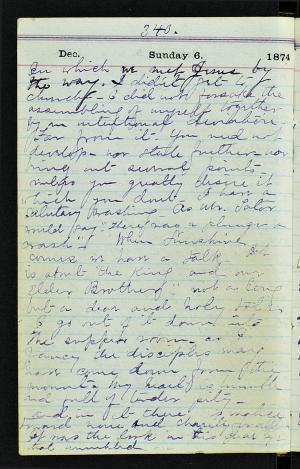 340.
Dec. Sunday 6. 1874
in which we met Jesus by
the way. I didn't get to
church I did not forsake the
assembling of myself together
by an intentional
Far from it. You need not
develop nor state further nor
ring out several points
unless you greatly desire it
which you don't. I have a
As Mr.
would say "there was a plunge a
When Sunshine
comes we have a talk
is about the King and our
Elder Brother not a long
but a dear and holy
I go out of it down into
the supper room as I
fancy the disciples may
have come down from the
mount. My heart is humble
and full of tender pity
and in it there is malice
toward none and charity
It was the look in His dear
that humbled